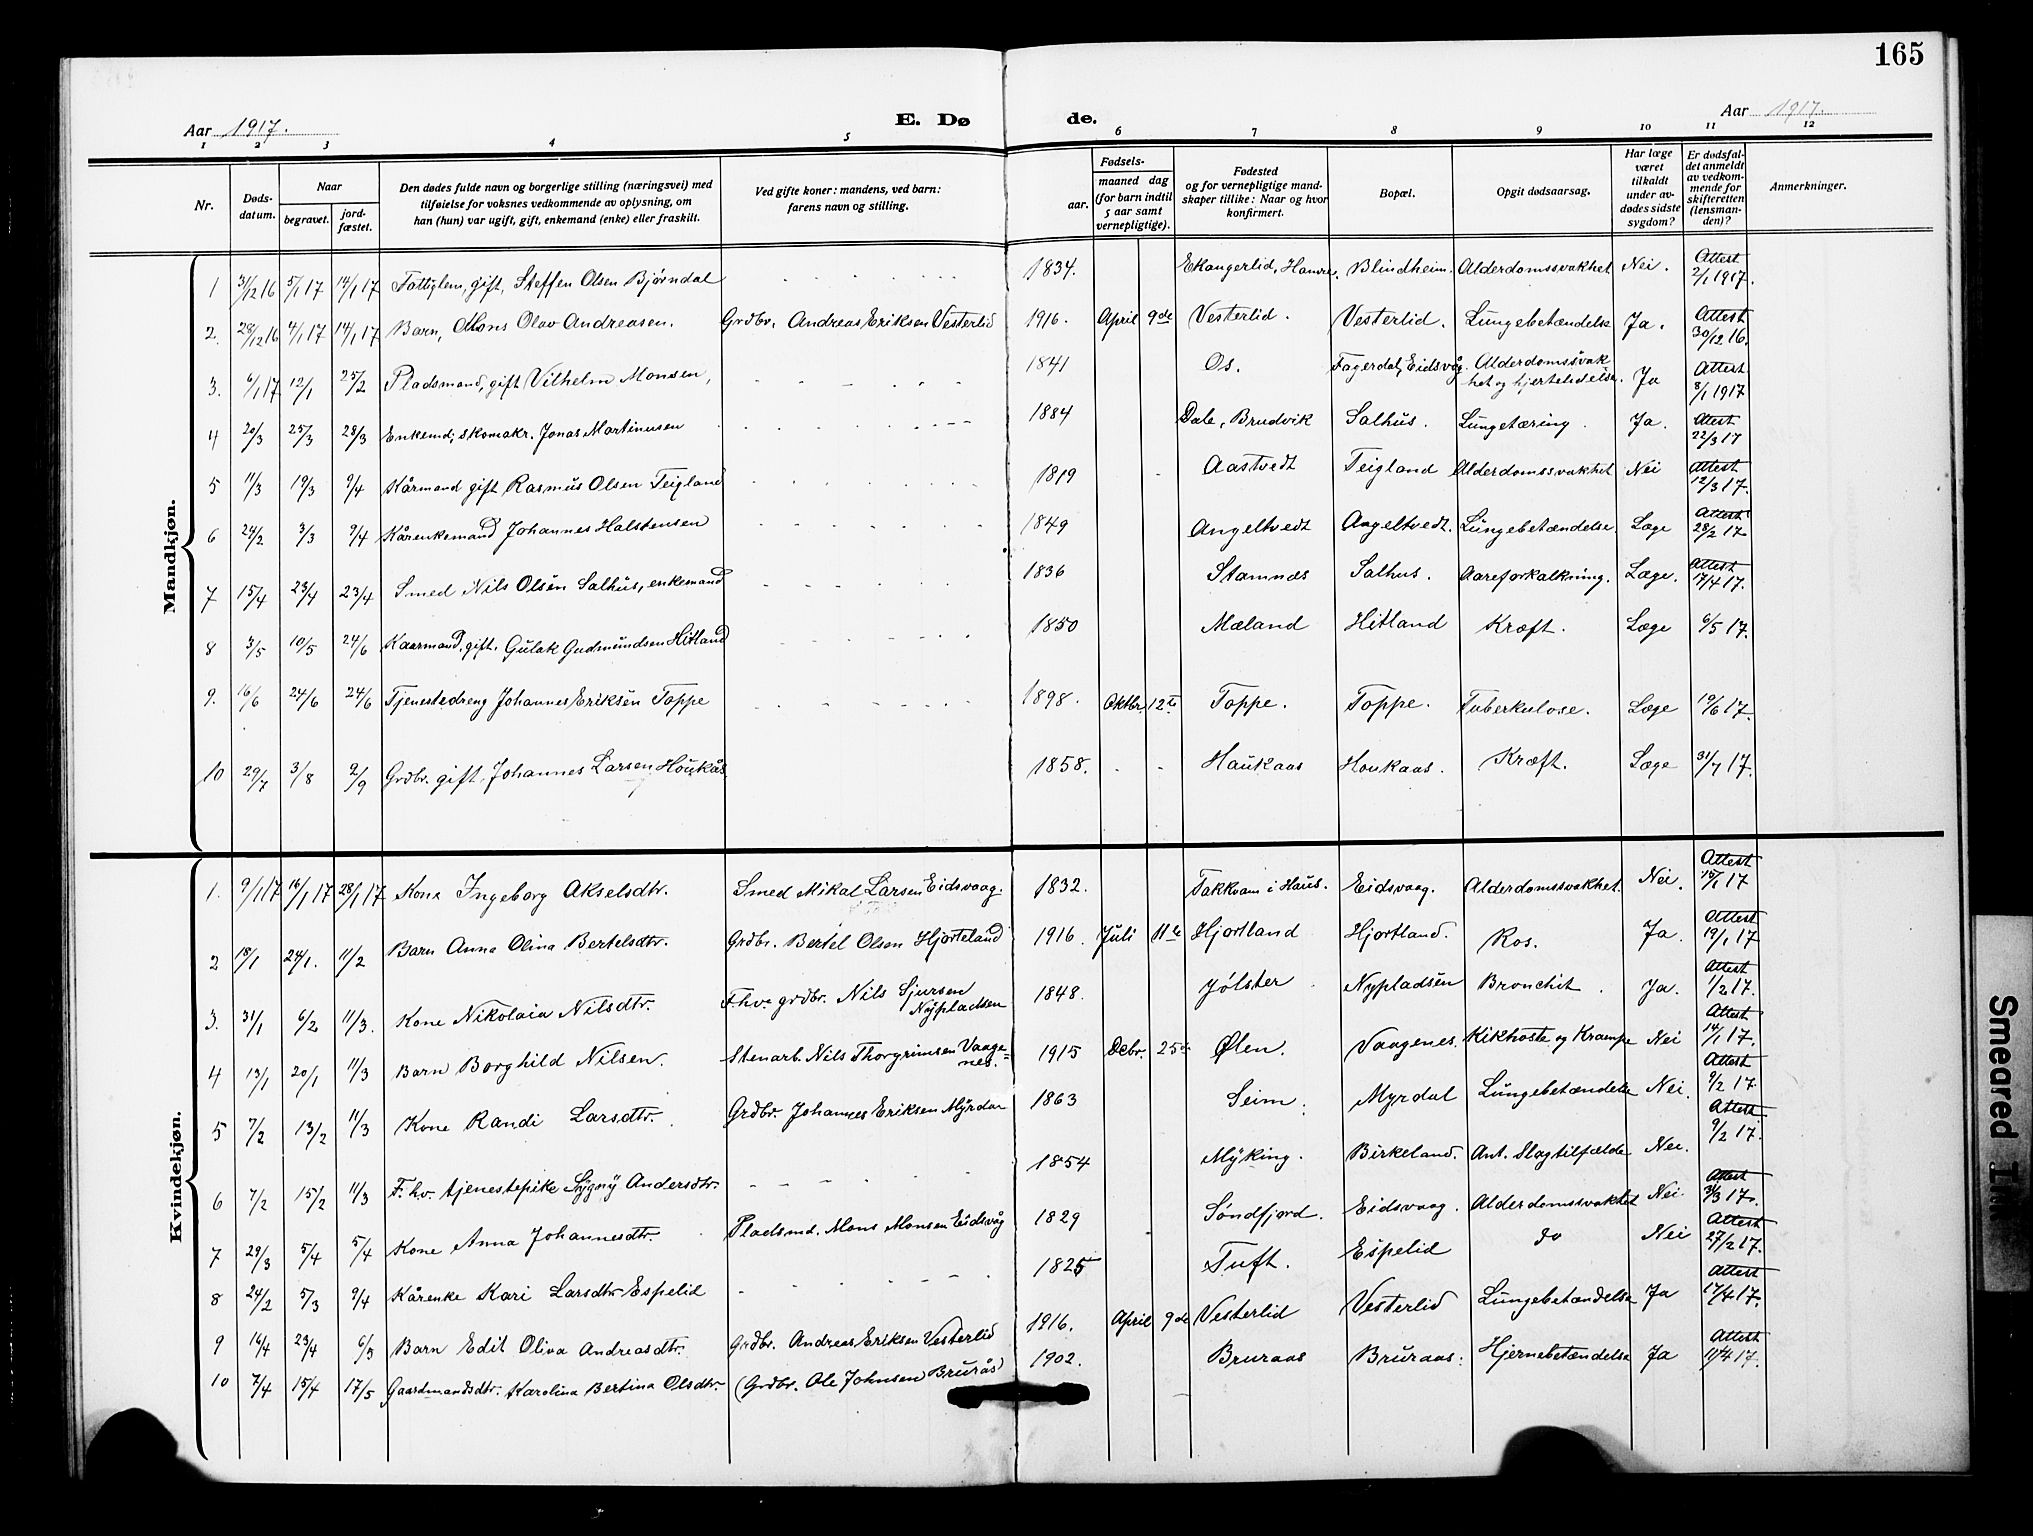 165
Aar 1917.
E. Dø
de.
Aar 1917.
1 2 3 4 5 6 7 8 9 10 11 12
Nr.
Døds-
datum.
Naar
begravet.
jord-
fæstet.
Den dødes fulde navn og borgerlige stilling (næringsvei) med
tilføielse for voksnes vedkommende av oplysning, om
han (hun) var ugift, gift, enkemand (enke) eller fraskilt.
Ved gifte koner: mandens, ved barn:
farens navn og stilling.
Fødsels-
aar.
maaned dag
(for barn indtil
5 aar samt
vernepligtige).
Fødested
og for vernepligtige mand-
skaper tillike: Naar og hvor
konfirmert.
Bopæl.
Opgit dødsaarsag.
Har læge
været
tilkaldt
under av-
dødes sidste
sygdom?
Er dødsfal-
det anmeldt
av vedkom-
mende for
skifteretten
(lensman-
den)?
Anmerkninger.
Mandkjøn.
1 31/12 16 5/1 17 14/1 17 Fattiglem, gift, Steffen Olsen Bjørndal - - - - - 1834. Ekangerlid, Hamre. Blindheim. Alderdomssvakhet Nei. Attest 2/1 1917.
2. 28/12 16 4/1 17 14/1 17 Barn, Mons Olav Andreasen. Grdbr. Andreas Eriksen Vesterlid 1916. April 9de Vesterlid. Vesterlid. Lungebetændelse Ja. Attest 30/12 16.
3. 6/1 17 12/1 25/2 Pladsmand, gift Vilhelm Monsen, - - - - - 1841 Os. Fagerdal, Eidsvåg. Alderdomssvak
het og hjertelidelse. Ja Attest 8/1 1917
4 20/3 25/3 28/3 Enkemd, skomakr. Jonas Martinusen - - - - - 1884 Dale, Brudvik Salhus. Lungetæring. Ja. Attest 22/3 17
5 11/3 19/3 9/4 Kårmand gift Rasmus Olsen Teigland - - - - - 1819 Aastvedt Teigland Alderdomssvakhet Nei Attest 12/3 17.
6 24/2 3/3 9/4 Kårenkemand Johannes Halstensen - - - - - 1849 Angeltvedt Angeltvedt. Lungebetændelse. Læge Attest 28/2 17
7 15/4 23/4 23/4 Smed Nils Olsen Salhus, enkemand - - - - - 1836 Stamnes Salhus. Aareforkalkning. Læge. Attest 17/4 17.
8 3/5 10/5 24/6 Kaarmand, gift. Gulak Gudmundsen Hitland - - - - - 1850 Mæland Hitland Kræft. Læge 6/5 17.
9. 16/6 24/6 24/6 Tjenestedreng Johannes Eriksen Toppe - - - - - 1898. Oktbr. 12te Toppe. Toppe. Tuberkulose. Læge 19/6 17.
10 29/7 3/8 2/9 Grdbr. gift, Johannes Larsen Houkås 1858. - - Haukaas Houkaas. Kræft. Læge 31/7 17.
Kvindekjøn.
1. 9/1 17 16/1 17 28/1 17 Kone Ingeborg Akselsdtr. Smed Mikal Larsen Eidsvaag. 1832. Takkvam i Haus. Eidsvaag. Alderdomssvakhet. Nei. Attest 15/1 17
2 18/1 24/1. 11/2 Barn Anna Olina Bertelsdtr. Grdbr. Bertel Olsen Hjorteland 1916. Juli 11te Hjortland Hjortland. Ros. Ja. Attest 19/1 17
3. 31/1 6/2 11/3. Kone Nikolaia Nilsdtr. F.hv. grdbr. Nils Sjursen
Nypladsen 1848. Jølster Nypladsen Bronchit. Ja. Attest 1/2 17.
4 13/1 20/1 11/3 Barn Borghild Nilsen. Stenarb. Nils Thorgrimsen Vaage=
nes. 1915 Debr. 25de Ølen. Vaagenes. Kikhoste og Krampe Nei Attest 14/1 17.
5 7/2 13/2 11/3 Kone Randi Larsdtr. Grdbr. Johannes Eriksen Myrdal 1863 Seim. Myrdal Lungebetændelse Nei. Attest 9/2 17.
6 7/2 15/2 11/3 F.hv. tjenestepike Sygny Andersdtr. - - - - - 1854 Myking. Birkeland. Ant. Slagtilfælde Nei. Attest 9/2 17.
7 29/3 5/4 5/4 Kone Anna Johannesdtr. Pladsmd. Mons Monsen Eidsvåg 1829 Søndfjord. Eidsvaag. Alderdomssvakhet Nei. Attest 31/3 17.
8 24/2 5/3 9/4 Kårenke Kari Larsdtr Espelid - - - - - 1825 Tuft. Espelid do Nei Attest 27/2 17.
9 14/4 23/4 6/5 Barn Edit Oliva Andreasdtr. Grdbr. Andreas Eriksen Vesterlid 1916. April 9de Vesterlid Vesterlid Lungebetændelse Ja Attest 17/4 17.
10 7/4 15/4 17/5 Gaardmandsdtr. Karolina Bertina Olsdtr. (Grdbr. Ole Johnsen Brurås) 1902. Bruraas Bruraas. Hjernebetændelse Ja Attest 11/4 17.
Smeared Ink